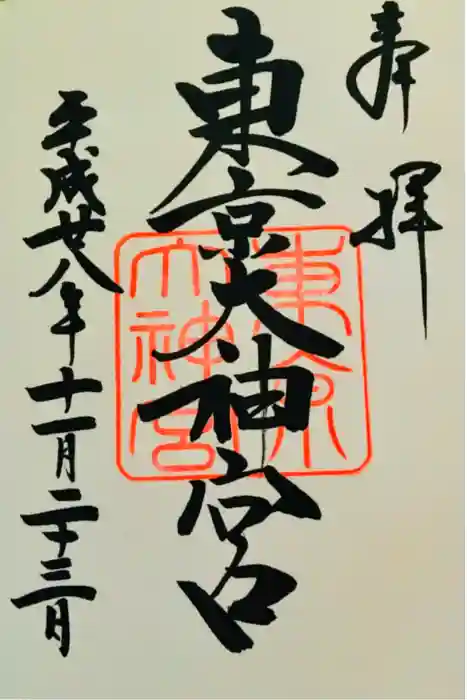 奉拝
東京大神宮
東京大神宮
平成廿八年十一月二十三日